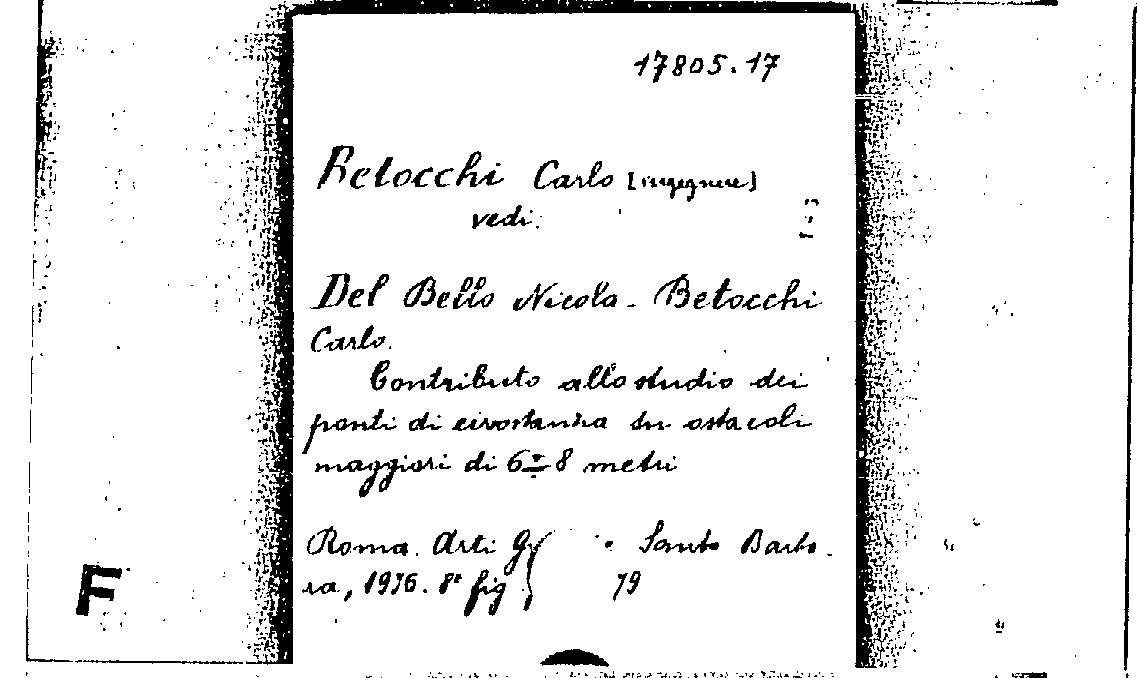 17805.17
Betocchi Carlo [ingegnere]
vedi.
Del Bello Nicola - Betocchi
Carlo.
Contributo allo studio dei
ponti di circostanza su ostacoli
maggiori di 6÷8 metri
Roma. Arti Santa Barba-
ra, 1936. 8° fig 79
F